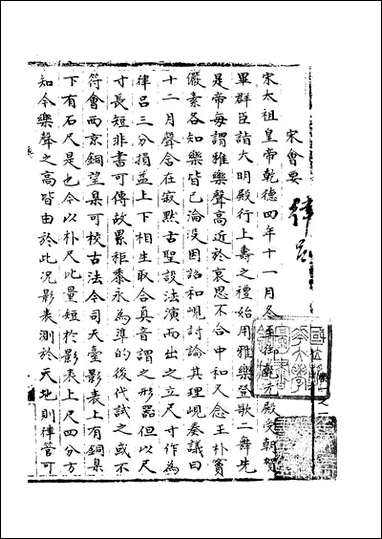 宋會要
律呂
宋太祖皇帝乾德四年十一月冬至御乾元殿受朝賀
畢群臣詣大明殿行上壽之禮始用雅樂登歌二舞先
是帝每謂雅樂聲高近於哀思不合中和又念王朴竇
儼素各知樂皆已淪沒因詔和峴討論其理峴奏議曰
十二月聲含在寂默古聖設法演而出之立尺寸作為
律呂三分損益上下相生取合真音謂之形器但以尺
寸長短非書可傳故累秬黍永為準的後代試之或不
符會西京銅望臬可校古法令司天臺影表上有銅臬
下有石尺是也今以朴尺比量短於影表上尺四分方
知今樂聲之高皆由於此況影表測於天地則律管可